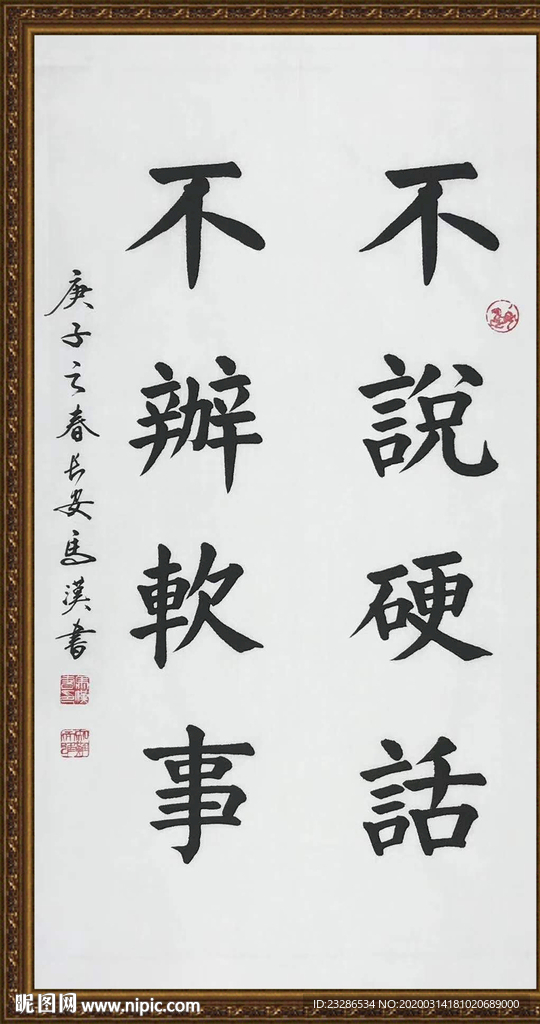 不說硬話
不辦軟事
庚子之春長安馬漢書
昵图网 www.nipic.com
ID:23286534 NO:20200314181020689000